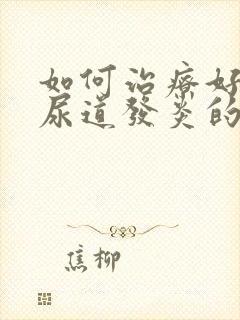 如何治療好
尿道發炎的
焦柳